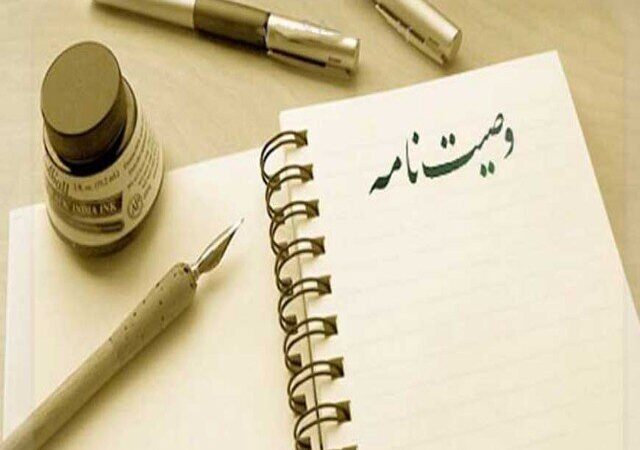 وصیت‌نامه
INDIA INK